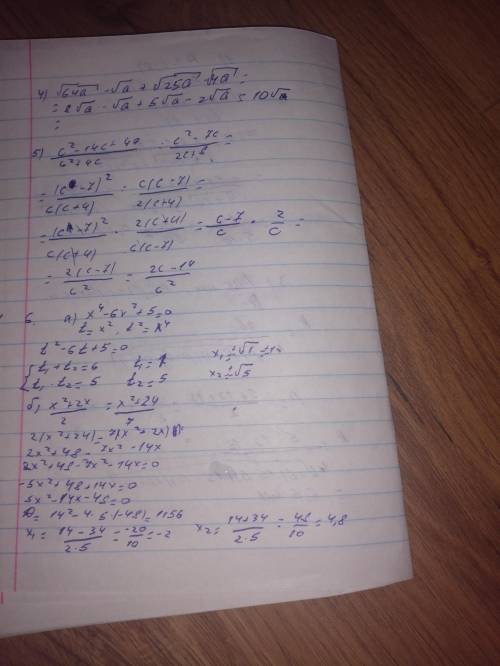 4) √64a - √a + √25a - √4a =
= 8√a - √a + 5√a - 2√a = 10√a
=
5) (c² - 14c + 49)/(c² + 4c) : (c² - 7c)/(2c + 8) =
= (c - 7)²/(c(c+4)) : (c(c-7))/(2(c+4)) =
= (c - 7)²/(c(c+4)) · (2(c+4))/(c(c-7)) = (c-7)/c · 2/c =
= (2(c-7))/c² = (2c - 14)/c²
6. а) x⁴ - 6x² + 5 = 0
t = x², t² = x⁴
t² - 6t + 5 = 0
{ t₁ + t₂ = 6 t₁ = 1 x₁ = ±√1 = ±1
{ t₁ · t₂ = 5 t₂ = 5 x₂ = ±√5
б) (x² + 2x)/2 = (x² + 24)/7
2(x² + 24) = 7(x² + 2x)
2x² + 48 = 7x² - 14x
2x² + 48 - 7x² - 14x = 0
-5x² + 48 + 14x = 0
5x² - 14x - 48 = 0
D = 14² - 4·5·(-48) = 1156
x₁ = (14 - 34)/(2·5) = -20/10 = -2 x₂ = (14 + 34)/(2·5) = 48/10 = 4,8